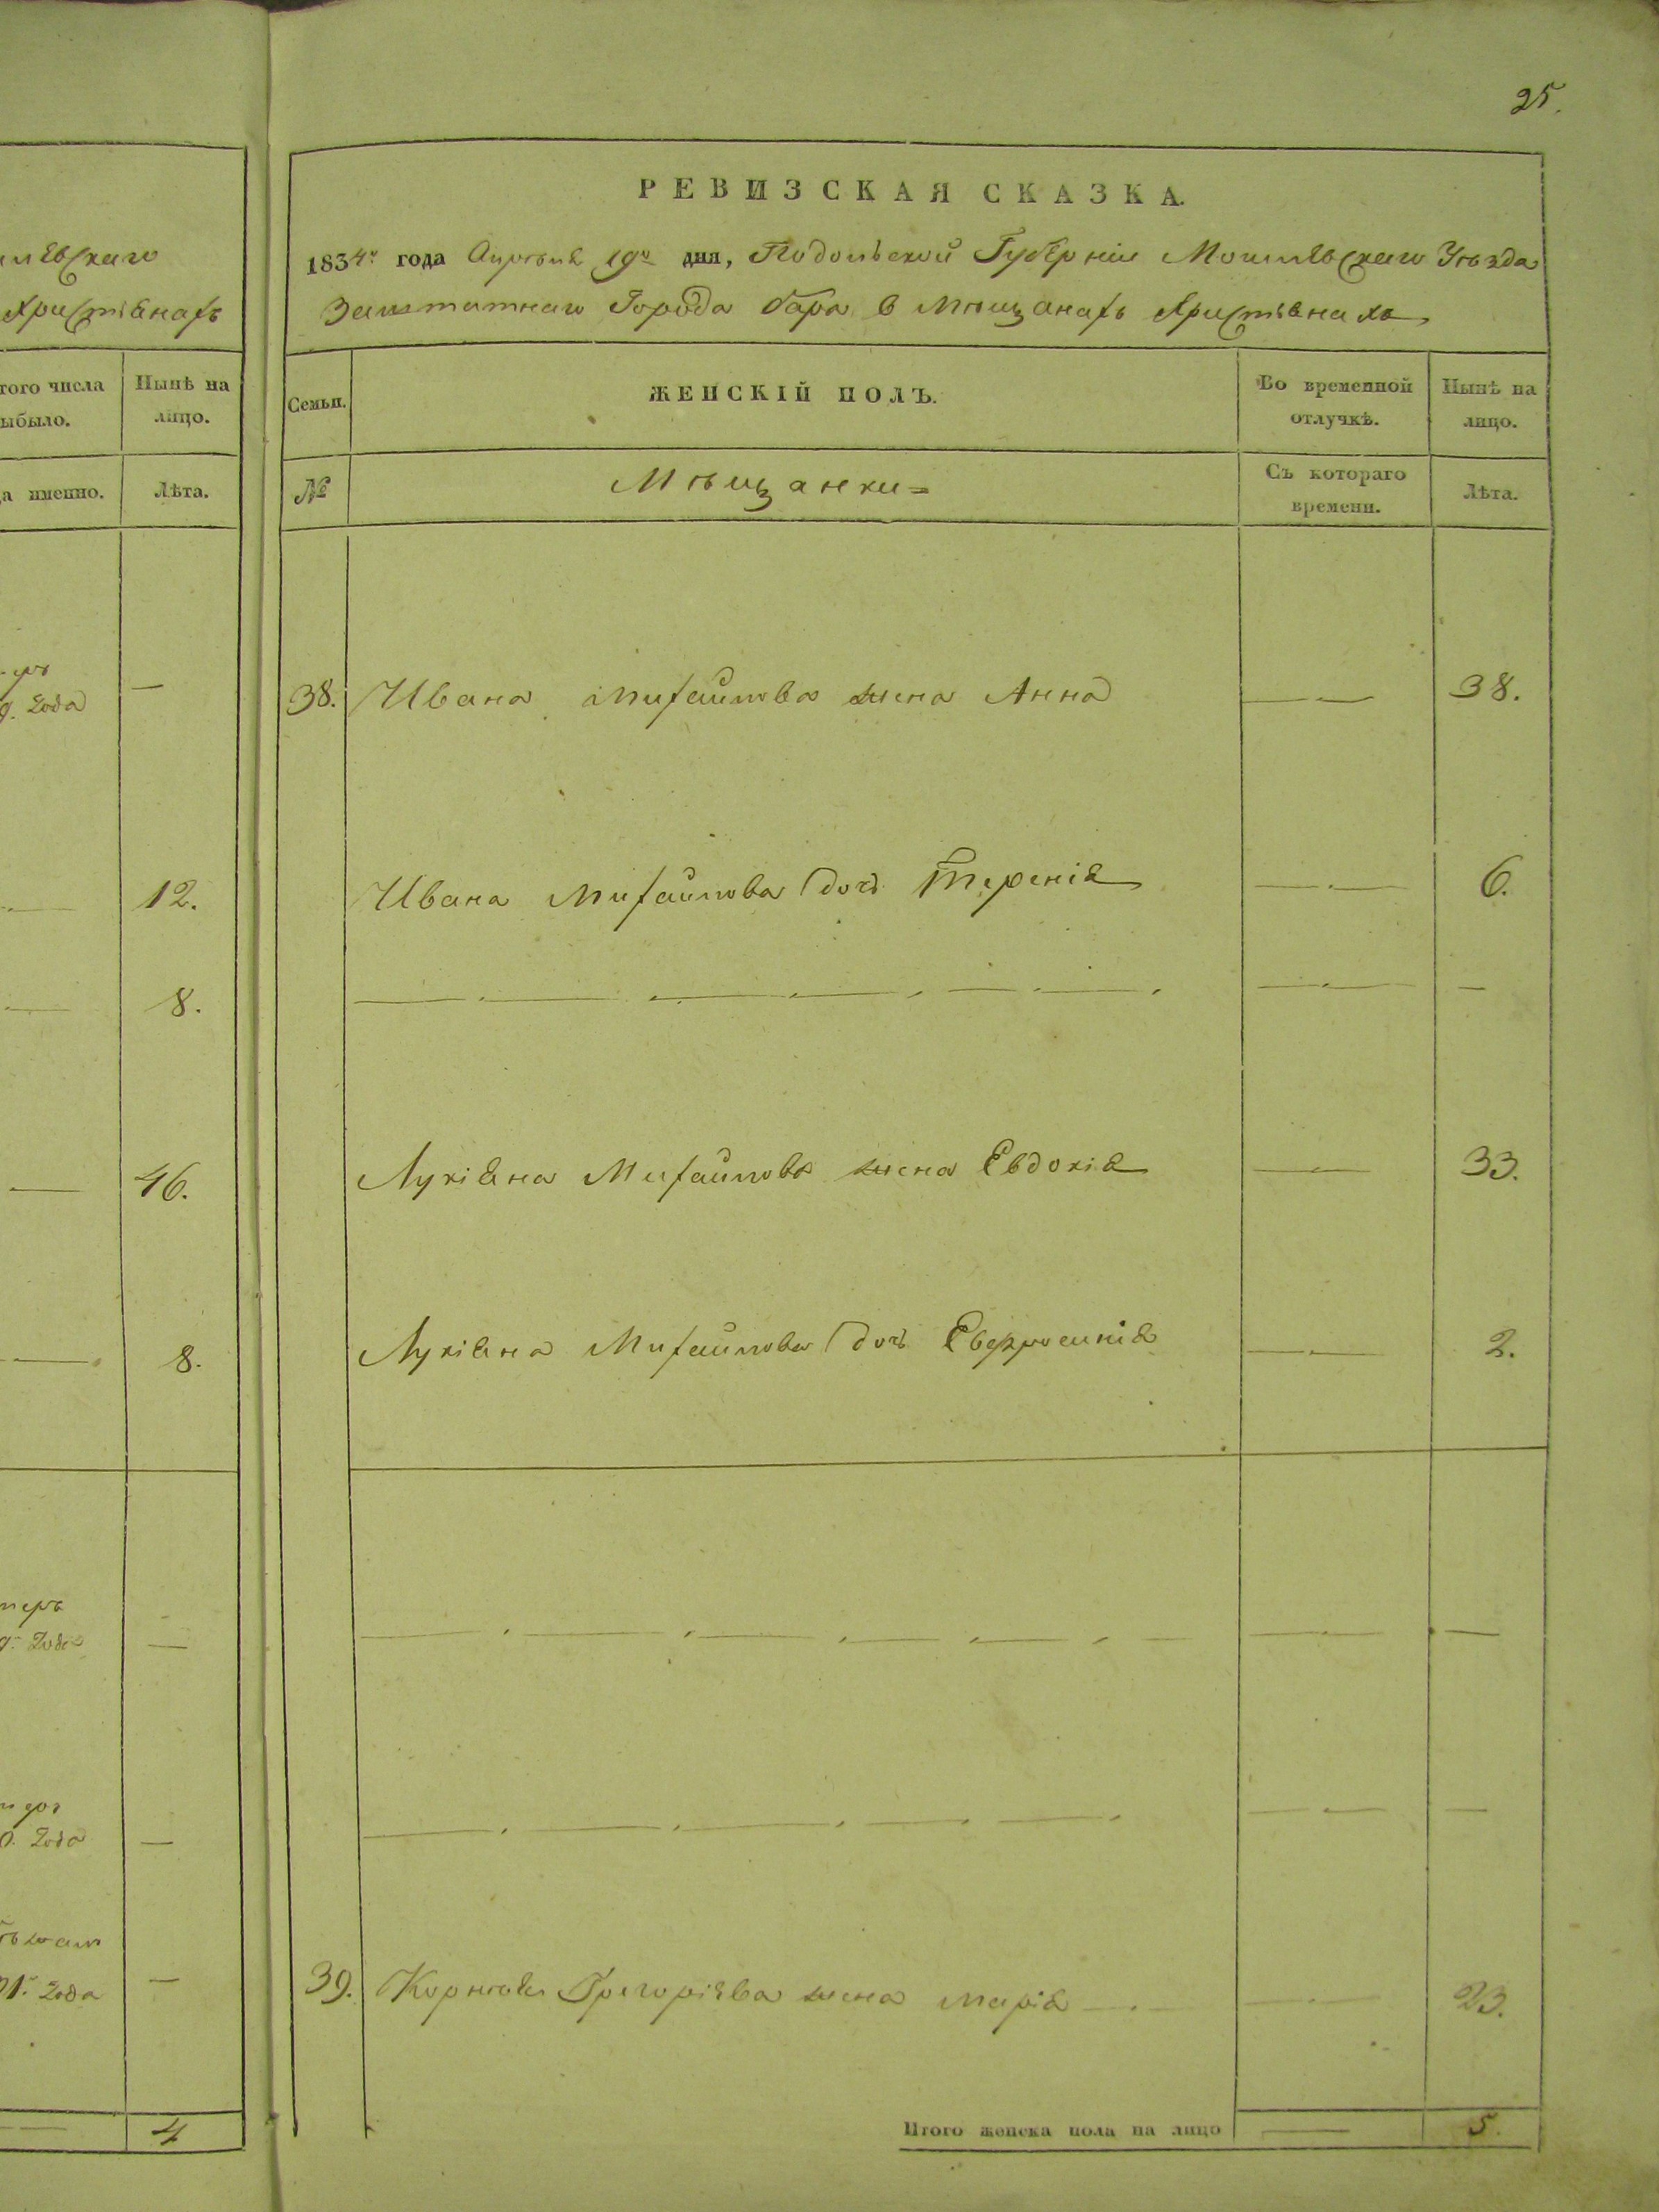 25.
мілѣвскаго
Христіанахъ
того числа
ыбыло.
Нынѣ на
лицо.
а именно.
Лѣта.
года
—
12.
8.
46.
8.
меръ
года
—
года
—
года
—
4
РЕВИЗСКАЯ СКАЗКА.
1834го года Апрѣля 19го дня, Подольской Губерніи Могилевскаго Уѣзда
Заштатнаго Города Бара в Мѣщанахъ Христіанахъ
Семьи.
ЖЕНСКІЙ ПОЛЪ.
Во временной
отлучкѣ.
Нынѣ на
лицо.
№
Мѣщанки
Съ котораго
времени.
Лѣта.
38. Ивана Михайлова жена Анна — — 38.
Ивана Михайлова дочь — — 6.
Лукіяна Михайлова жена Евдокія — — 33.
Лукіяна Михайлова дочь Евфросинія — — 2.
39. Корнѣя Григоріева жена Марія — — 23.
Итого женска пола на лицо — 5.